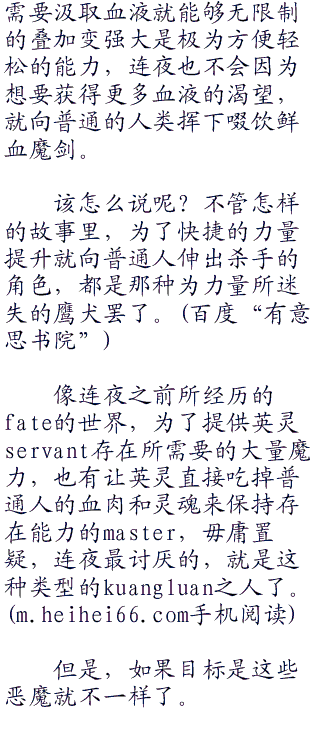 需要汲取血液就能够无限制
的叠加变强大是极为方便轻
松的能力，连夜也不会因为
想要获得更多血液的渴望，
就向普通的人类挥下啜饮鲜
血魔剑。
该怎么说呢？不管怎样
的故事里，为了快捷的力量
提升就向普通人伸出杀手的
角色，都是那种为力量所迷
失的鹰犬罢了。(百度“有意
思书院”)
像连夜之前所经历的
fate的世界，为了提供英灵
servant存在所需要的大量魔
力，也有让英灵直接吃掉普
通人的血肉和灵魂来保持存
在能力的master，毋庸置
疑，连夜最讨厌的，就是这
种类型的kuangluan之人了。
(m.heihei66.com手机阅读)
但是，如果目标是这些
恶魔就不一样了。